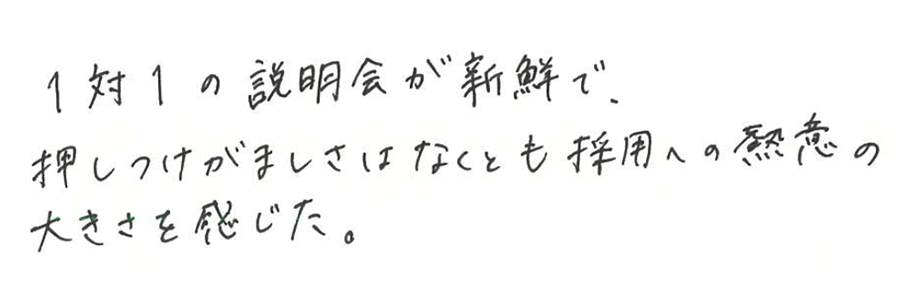 1対1の説明会が新鮮で、
押しつけがましさはなくとも採用への熱意の
大きさを感じた。